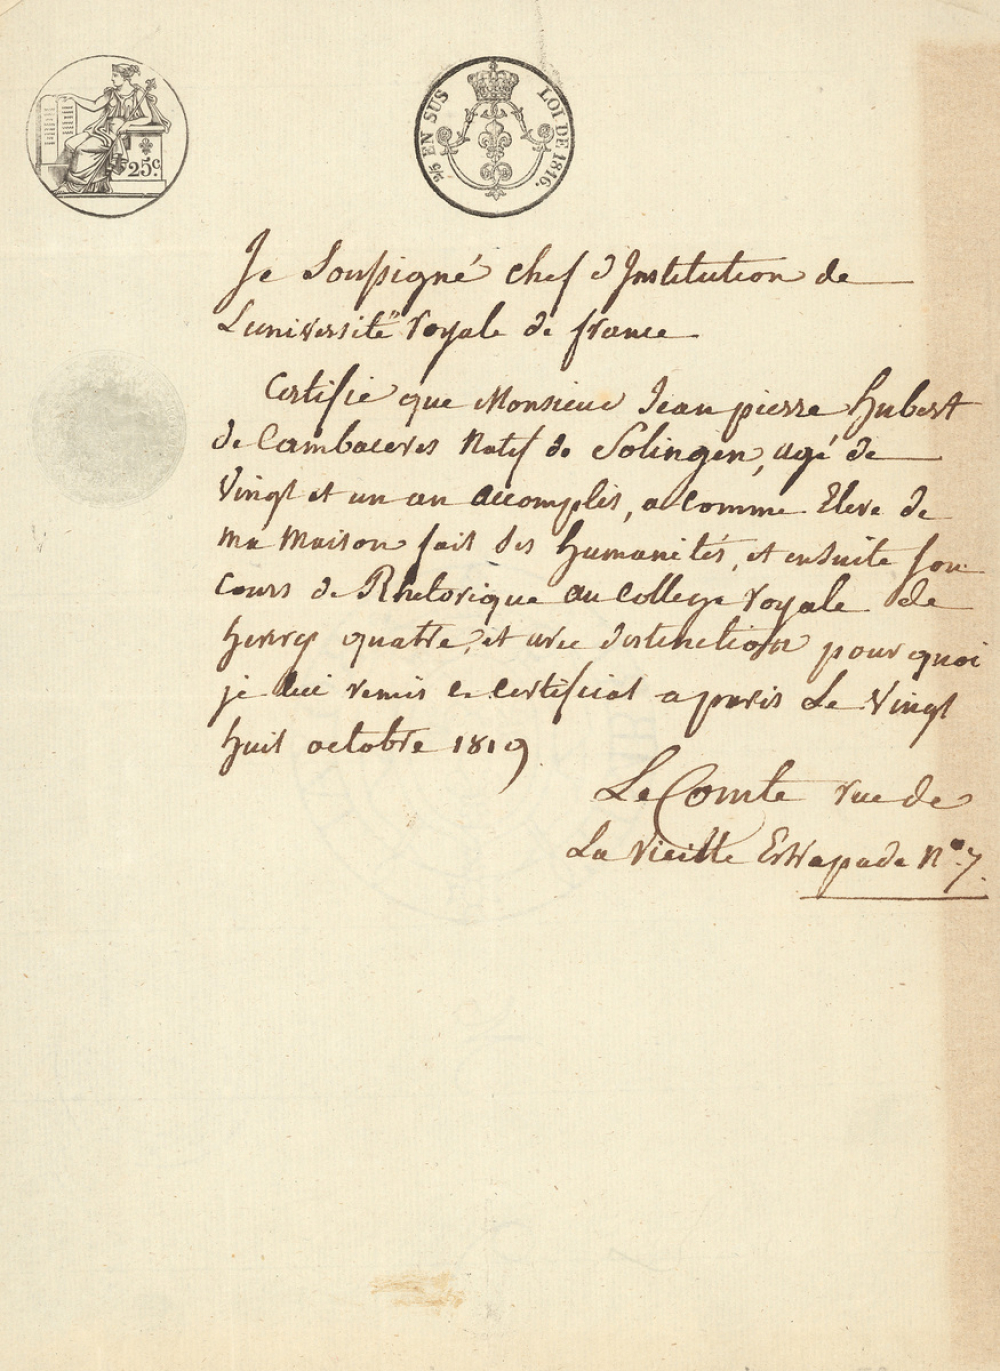 25c.
2/5 EN SUS LOI DE 1816.
Je Soussigné chef d'Institution de
L'université royale de france
Certifie que Monsieur Jean pierre hubert
de Cambacerès Natif de Solingen, agé de
Vingt et un an accomplis, a comme Eleve de
ma maison fait ses humanités, et ensuite son
cours de Rhétorique au college royale de
henry quatre, et avec distinction pour quoi
je lui remis ce certificat a paris Le Vingt
huit octobre 1819.
Le Comte rue de
La Vieille Estrapade No. 7.